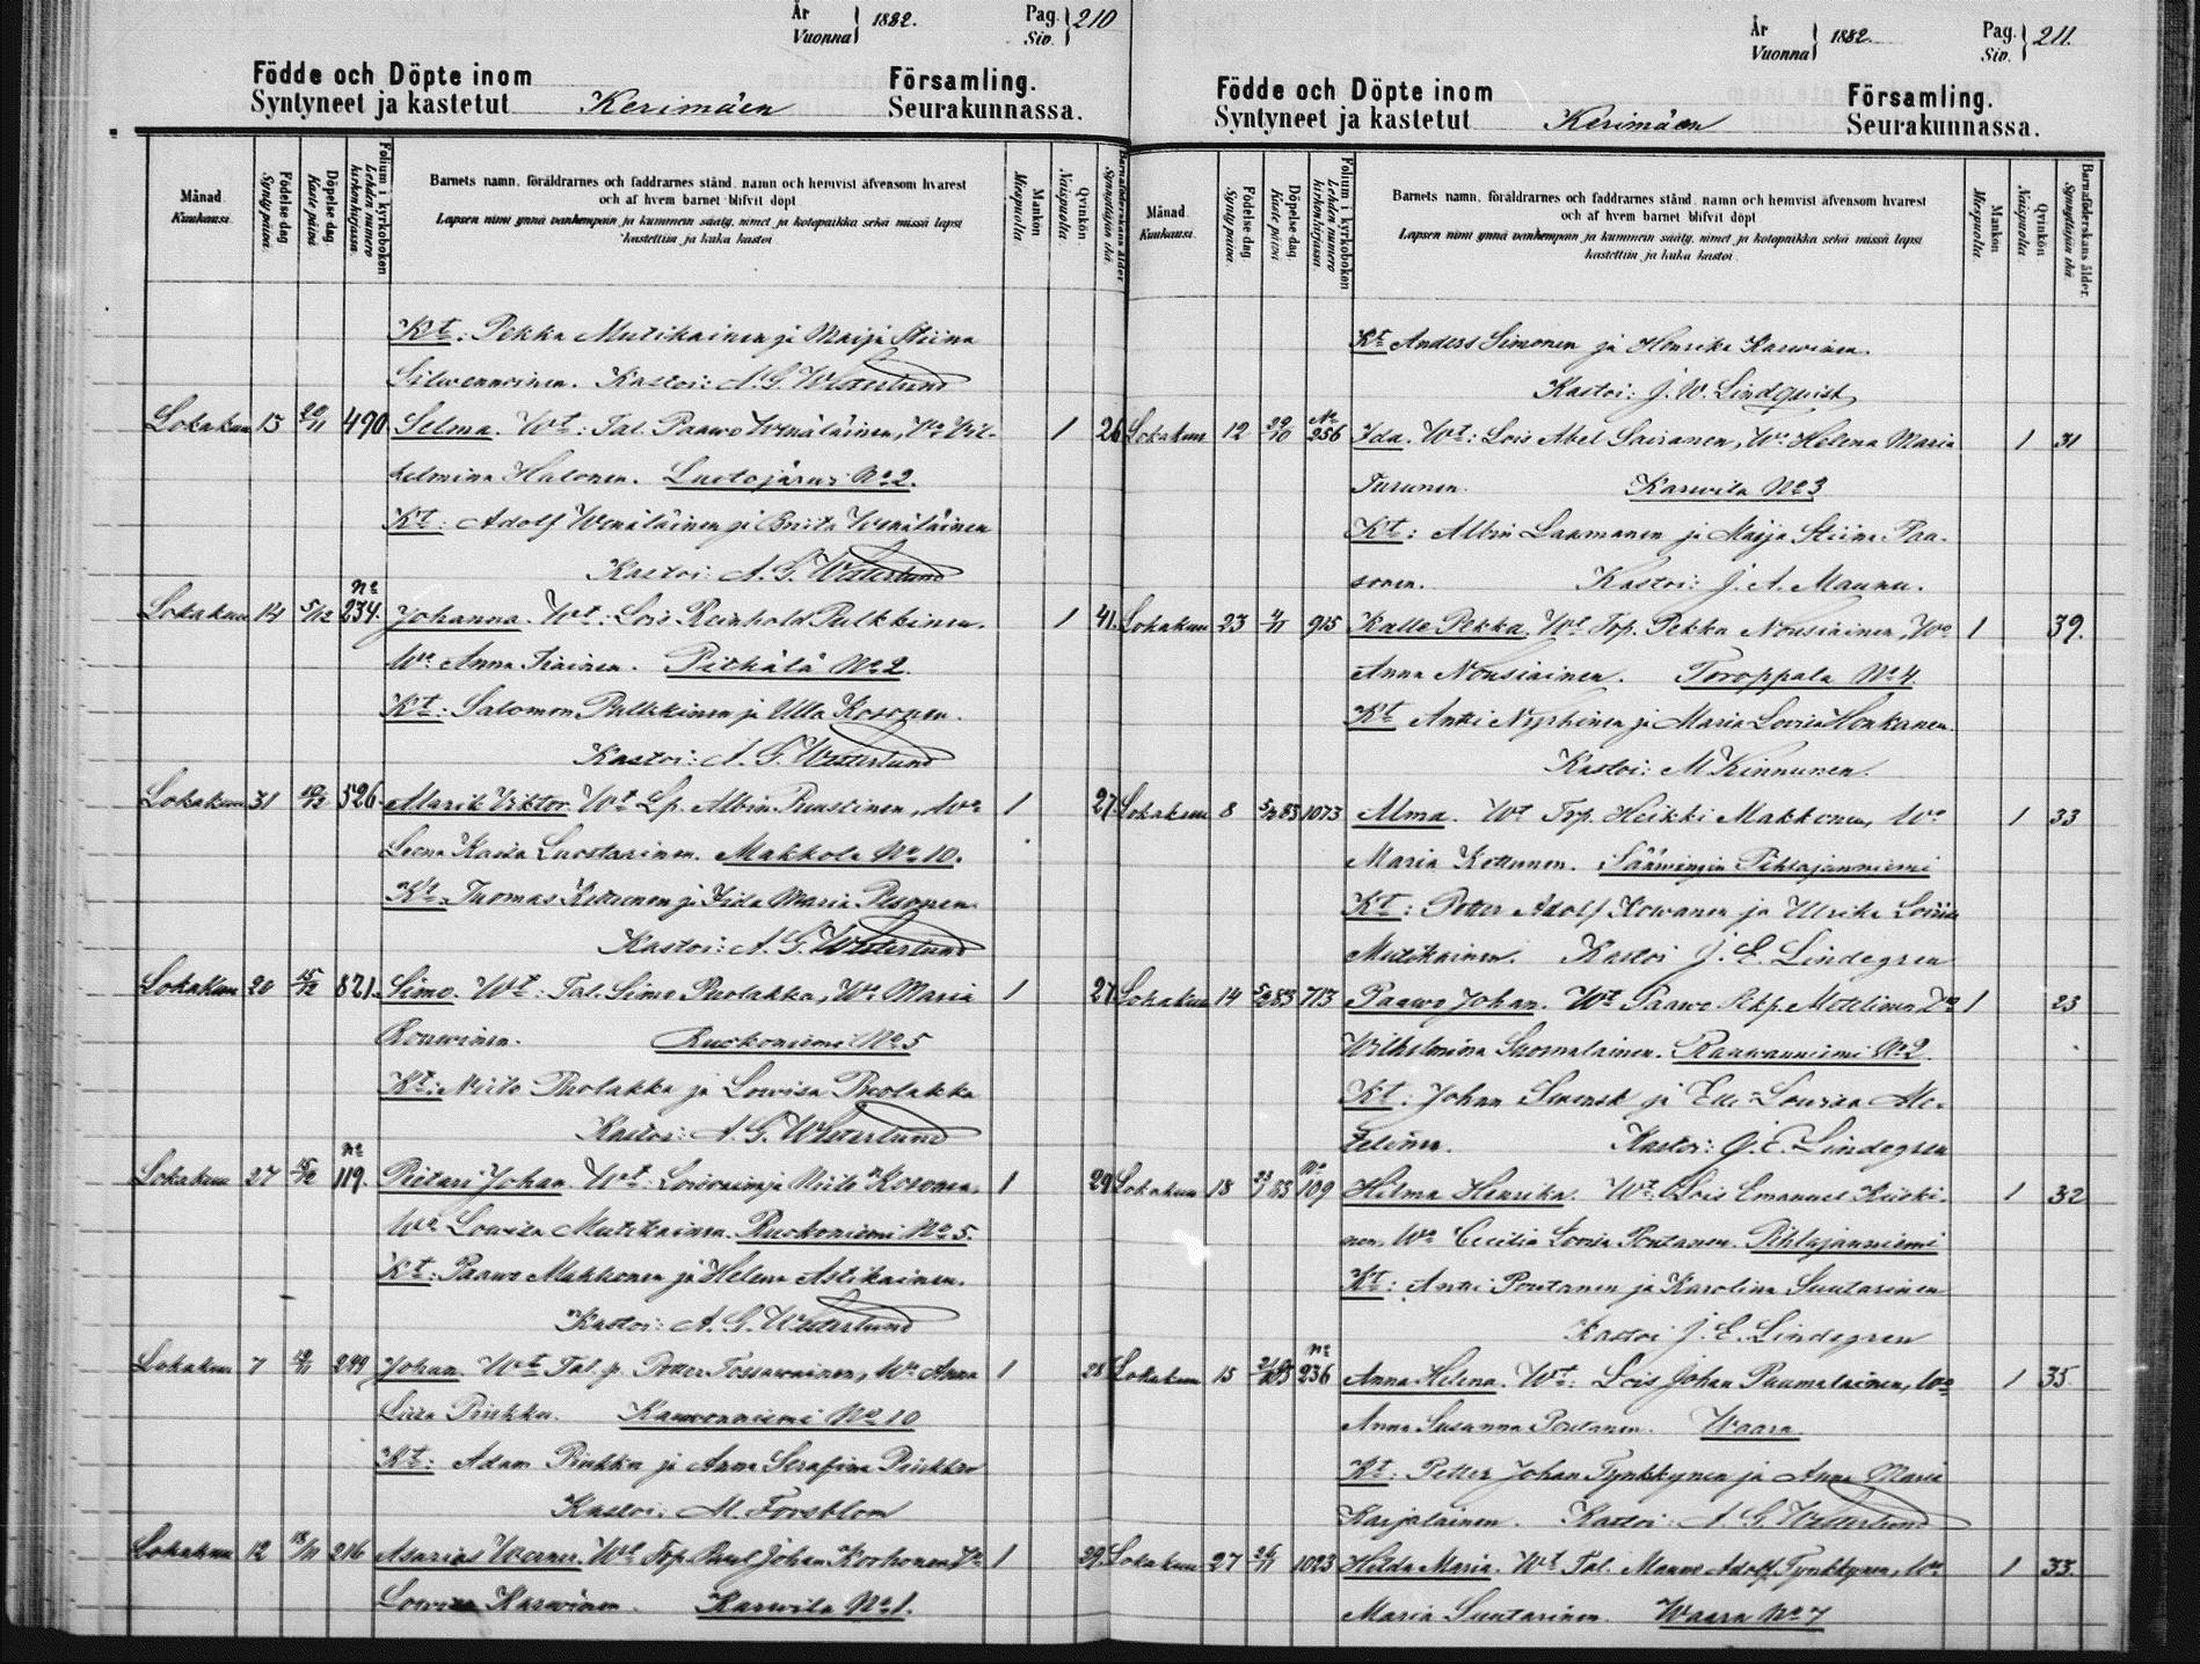 År
Vuonna } 1882.
Pag.
Siv. } 210
Födde och Döpte inom
Syntyneet ja kastetut Kerimäen
Församling.
Seurakunnassa.
Månad.
Kuukausi.
Födelse dag
Synty päivä.
Döpelse dag
Kaste päivä
Folium i kyrkoboken
Lehden numero
kirkonkirjassa.
Barnets namn, föräldrarnes och faddrarnes stånd, namn och hemvist äfvensom hvarest
och af hvem barnet blifvit döpt
Lapsen nimi ynnä vanhempain ja kummein sääty, nimet ja kotopaikka sekä missä lapsi
kastettiin ja kuka kastoi
Mankön
Miespuolia
Qvinkön
Naispuolia.
Barnaföderskans ålder
Synnyttäjän ikä.
Kt: Pekka Mutikainen ja Maija Stiina
Silwennoinen. Kastoi: A. G. Westerlund
Lokakuu 15 20/11 490 Selma. Wt: Tal. Paawo Wenäläinen, Wo Wil- 1 26
helmina Halonen. Luotojärwi No 2.
Kt: Adolf Wenäläinen ja Briita Wenäläinen
Kastoi: A. G. Westerlund
Lokakuu 14 5/12 No 234. Johanna. Wt: Lois Reinhold Pulkkinen. 1 41.
Wo Anna Tiainen. Pitkälä No 2.
Kt: Salomon Pulkkinen ja Ulla Kosonen.
Kastoi: A. G. Westerlund
Lokakuu 31 10/12 526. Marik Viktor. Wt Lp. Albin Ruustinen, Wo 1 27.
Leena Kaisa Luostarinen. Makkola No 10.
Kt: Tuomas Kettunen ja Iida Maria Pesonen
Kastoi: A. G. Westerlund
Lokakuu 20 15/12 821. Simo. Wt: Tal. Simo Puolakka, Wo Maria 1 27
Rouwinen. Ruokoniemi No 5
Kt: Niilo Puolakka ja Lowisa Puolakka
Kastoi: A. G. Westerlund
Lokakuu 27 15/12 No 119. Pietari Johan. Wt: Loisvaimja Niilo Kosonen, 1 29
Wo Lowisa Mutikainen. Ruokoniemi No 5.
Kt: Paawo Makkonen ja Helena Astikainen.
Kastoi: A. G. Westerlund
Lokakuu 7 19/11 299 Johan. Wt Tal. p. Petter Tossawainen, Wo Anna 1 28
Liisa Piukka. Kauwonniemi No 10
Kt: Adam Piukka ja Anna Serafina Piukka
Kastoi: M. Forsblom
Lokakuu 12 18/11 216 Asarias Werner. Wt Trp. Paul Johan Korhonen, Wo 1 29
Lowisa Karwinen. Karwila No 1.
År
Vuonna } 1882.
Pag.
Siv. } 211.
Födde och Döpte inom
Syntyneet ja kastetut Kerimäen
Församling.
Seurakunnassa.
Månad.
Kuukausi.
Födelse dag
Synty päivä.
Döpelse dag.
Kaste päivä
Folium i kyrkoboken
Lehden numero
kirkonkirjassa
Barnets namn, föräldrarnes och faddrarnes stånd, namn och hemvist äfvensom hvarest
och af hvem barnet blifvit döpt
Lapsen nimi ynnä vanhempain ja kummein sääty, nimet ja kotopaikka sekä missä lapsi
kastettiin ja kuka kastoi.
Mankön
Miespuolia.
Qvinkön
Naispuolia
Barnaföderskans ålder.
Synnyttäjän ikä
Kt Anders Simonen ja Henrika Karwinen.
Kastoi: J. W. Lindquist
Lokakuu 12 29/10 No 256 Ida. Wt: Lois Abel Sairanen, Wo Helena Maria 1 31
Turunen. Karwila No 3
Kt: Albin Laamanen ja Maija Stiina Paa-
sonen. Kastoi: J. A. Maunu.
Lokakuu 23 4/11 915 Kalle Pekka. Wt Trp. Pekka Nousiainen, Wo 1 39.
Anna Nousiainen. Toroppala No 4.
Kt Antti Nyyhinen ja Maria Lovisa Honkanen.
Kastoi: M Kinnunen.
Lokakuu 8 5/3 83 1073 Alma. Wt Trp. Heikki Makkonen, Wo 1 33
Maria Kettunen. Sääwingin Pihlajanniemi
Kt: Petter Adolf Kowanen ja Ulrika Loviisa
Mutikainen. Kastoi J. E. Lindegren
Lokakuu 14 5/3 83 713 Paawo Johan. Wt Paawo Pekp. Mettinen Wo 1 23
Wilhelmina Suomalainen. Raawanniemi No 2.
Kt: Johan Swensk ja Ewa Lowisa Me-
telinen. Kastoi: J. E. Lindegren
Lokakuu 18 23/1 83 No 109 Hilma Henrika. Wt: Lois Emanuel Kuoki- 1 32
nen, Wo Cecilia Lovisa Poutanen. Pihlajanniemi
Kt: Antti Poutanen ja Karolina Suutarinen
Kastoi J. E. Lindegren
Lokakuu 15 No 236 Anna Helena. Wt: Lois Johan Puumalainen, Wo 1 35.
Anna Susanna Poutanen. Waara
Kt: Petter Johan Tynkkynen ja Anna Maria
Karjalainen. Kastoi: A. G. Westerlund
Lokakuu 27 26/11 1023 Hilda Maria. Wt Tal. Mauno Adolf Tynkkynen, Wo 1 33.
Maria Suutarinen. Waara No 7